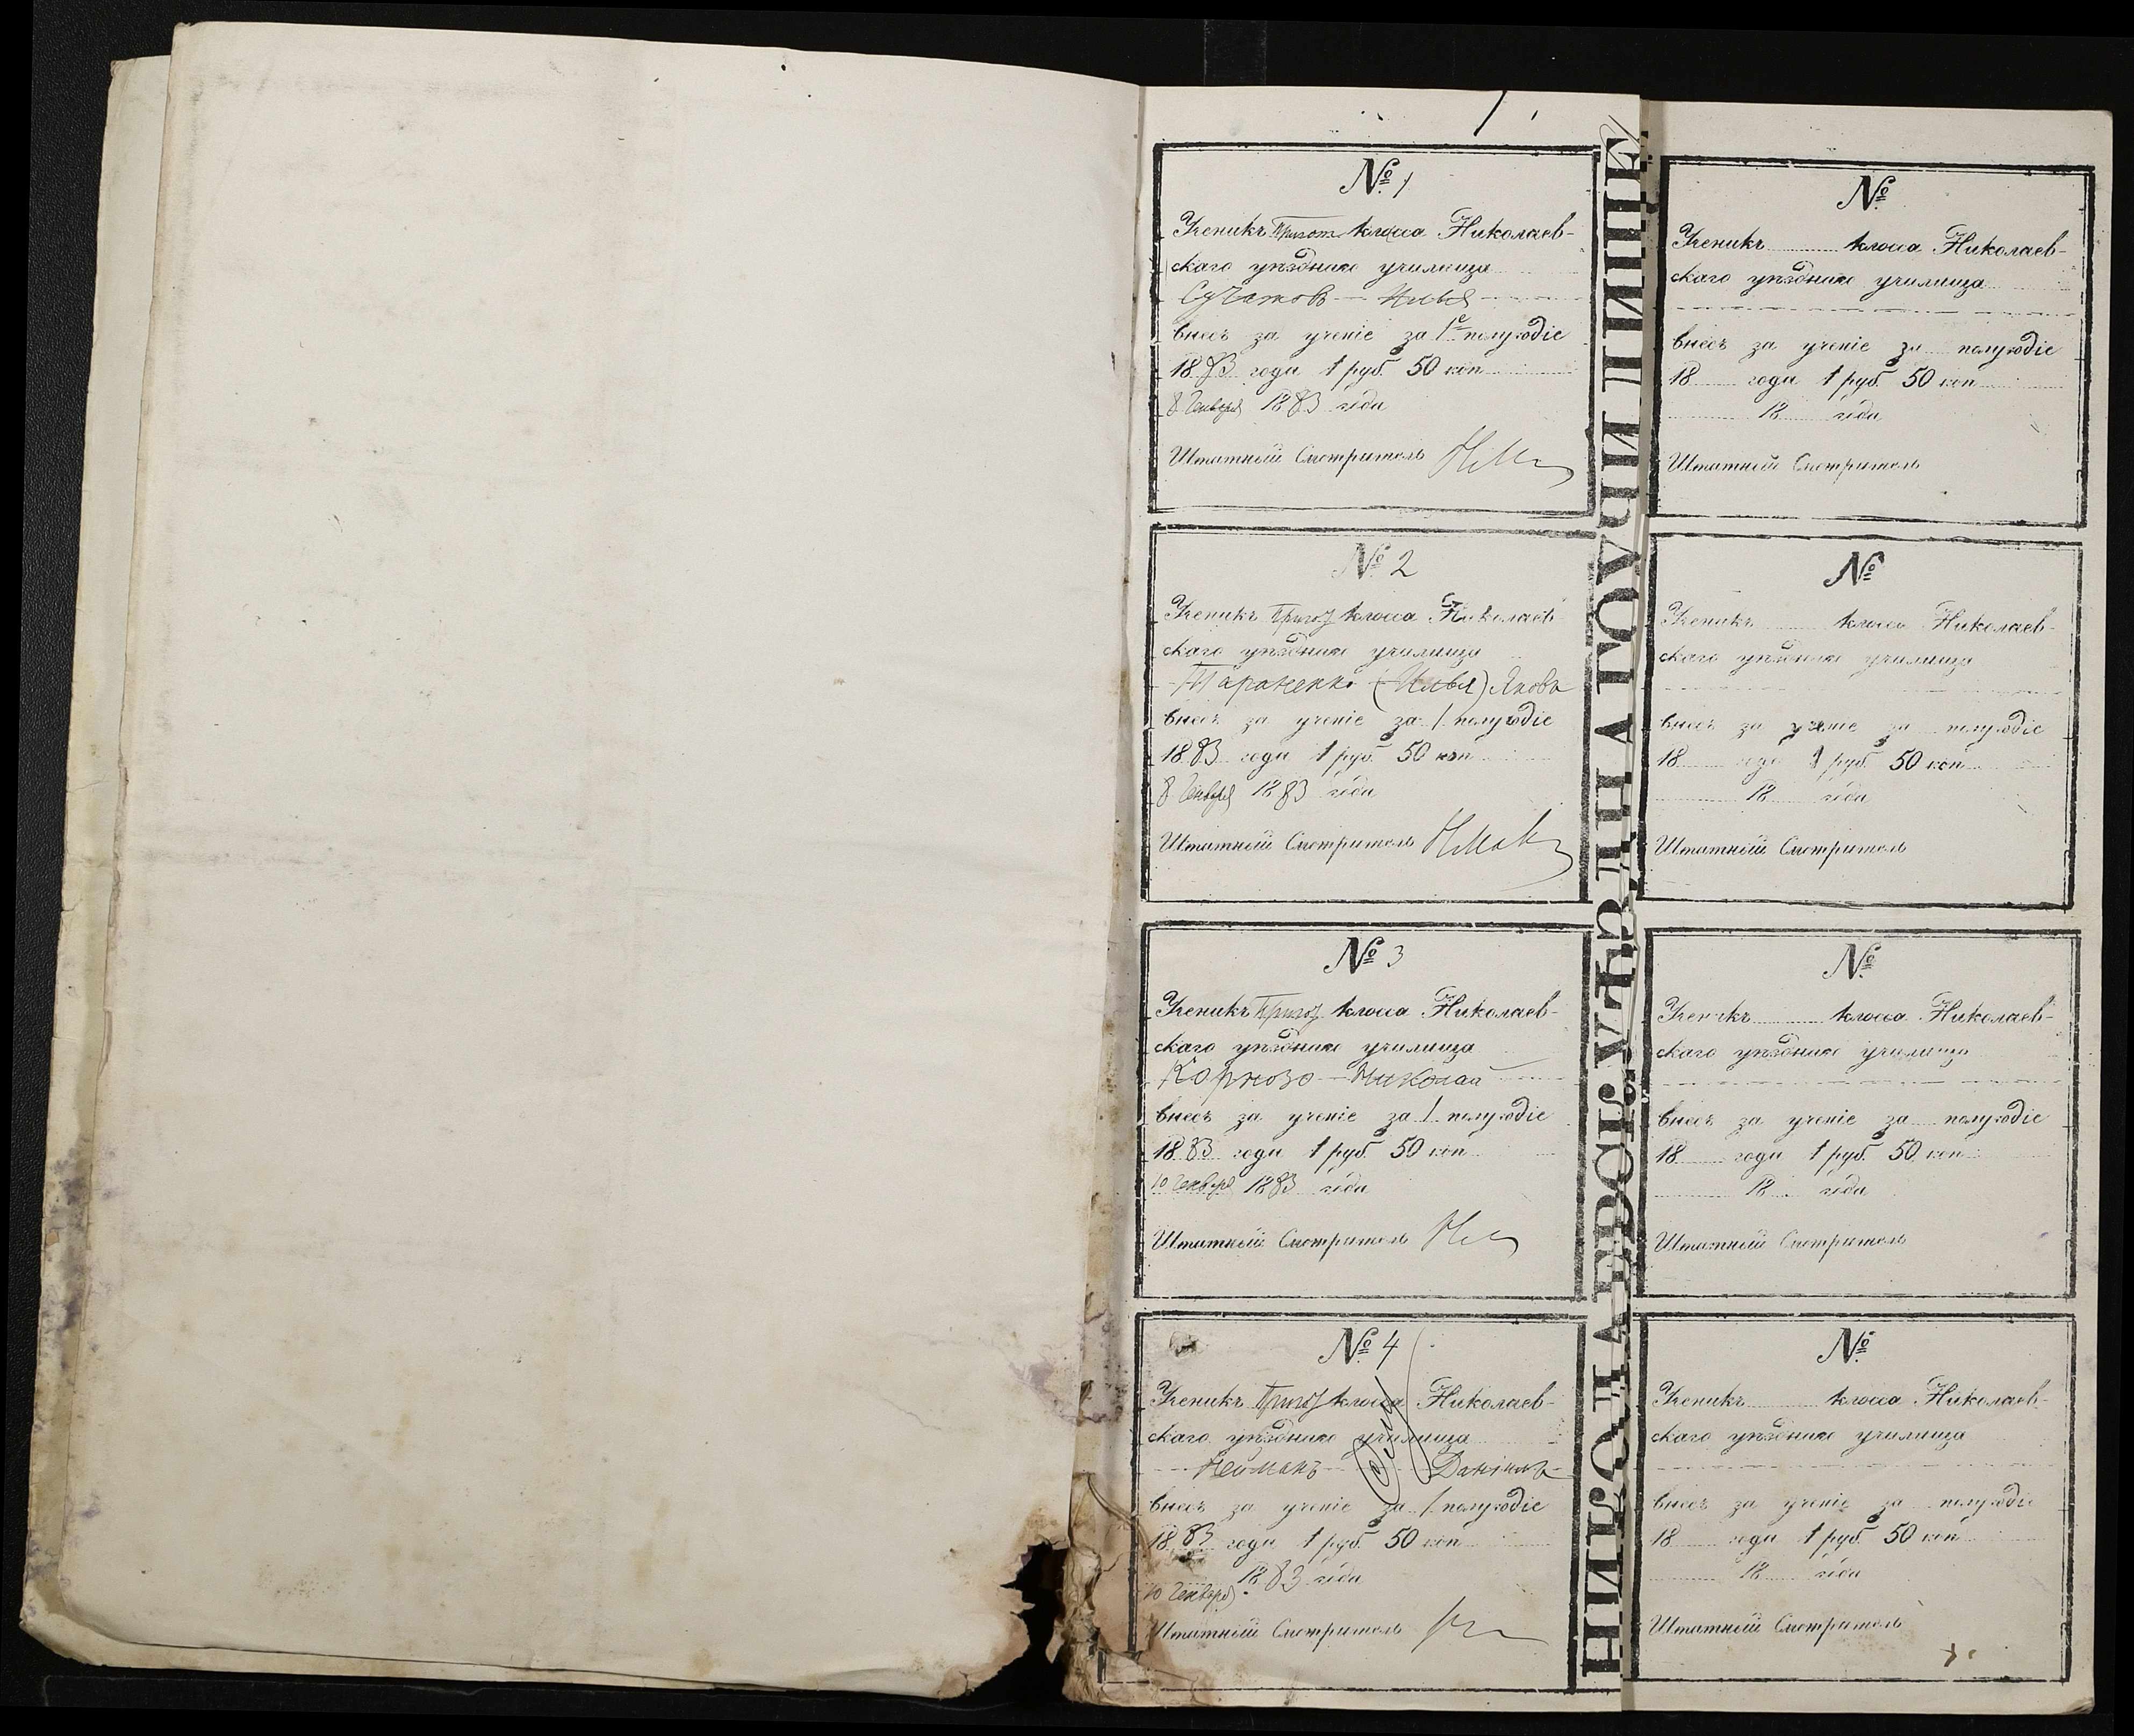 № 1
Ученикъ Пригот класса Николаев-
скаго уѣзднаго училища
Илья
внесъ за ученіе за 1е полугодіе
1883 года 1 руб. 50 коп
8 Генваря 1883 года
Штатный Смотритель
№ 2
Ученикъ Пригот класса Николаев-
скаго уѣзднаго училища
Тараненко (Илья) Яковъ
внесъ за ученіе за 1 полугодіе
1883 года 1 руб. 50 коп
8 Генваря 1883 года
Штатный Смотритель
№ 3
Ученикъ Пригот класса Николаев-
скаго уѣзднаго училища
Николай
внесъ за ученіе за 1 полугодіе
1883 года 1 руб. 50 коп
10 Генваря 1883 года
Штатный Смотритель
№ 4
Ученикъ Пригот класса Николаев-
скаго уѣзднаго училища
Нейманъ Даніилъ
внесъ за ученіе за 1 полугодіе
1883 года 1 руб. 50 коп
10 Генваря 1883 года
Штатный Смотритель
НИКОЛАЕВСК. УѢЗДНАГО УЧИЛИЩЕ
№
Ученикъ класса Николаев-
скаго уѣзднаго училища
внесъ за ученіе за полугодіе
18 года 1 руб. 50 коп
18 года
Штатный Смотритель
№
Ученикъ класса Николаев-
скаго уѣзднаго училища
внесъ за ученіе за полугодіе
18 года 1 руб. 50 коп
18 года
Штатный Смотритель
№
Ученикъ класса Николаев-
скаго уѣзднаго училища
внесъ за ученіе за полугодіе
18 года 1 руб. 50 коп
18 года
Штатный Смотритель
№
Ученикъ класса Николаев-
скаго уѣзднаго училища
внесъ за ученіе за полугодіе
18 года 1 руб. 50 коп
18 года
Штатный Смотритель